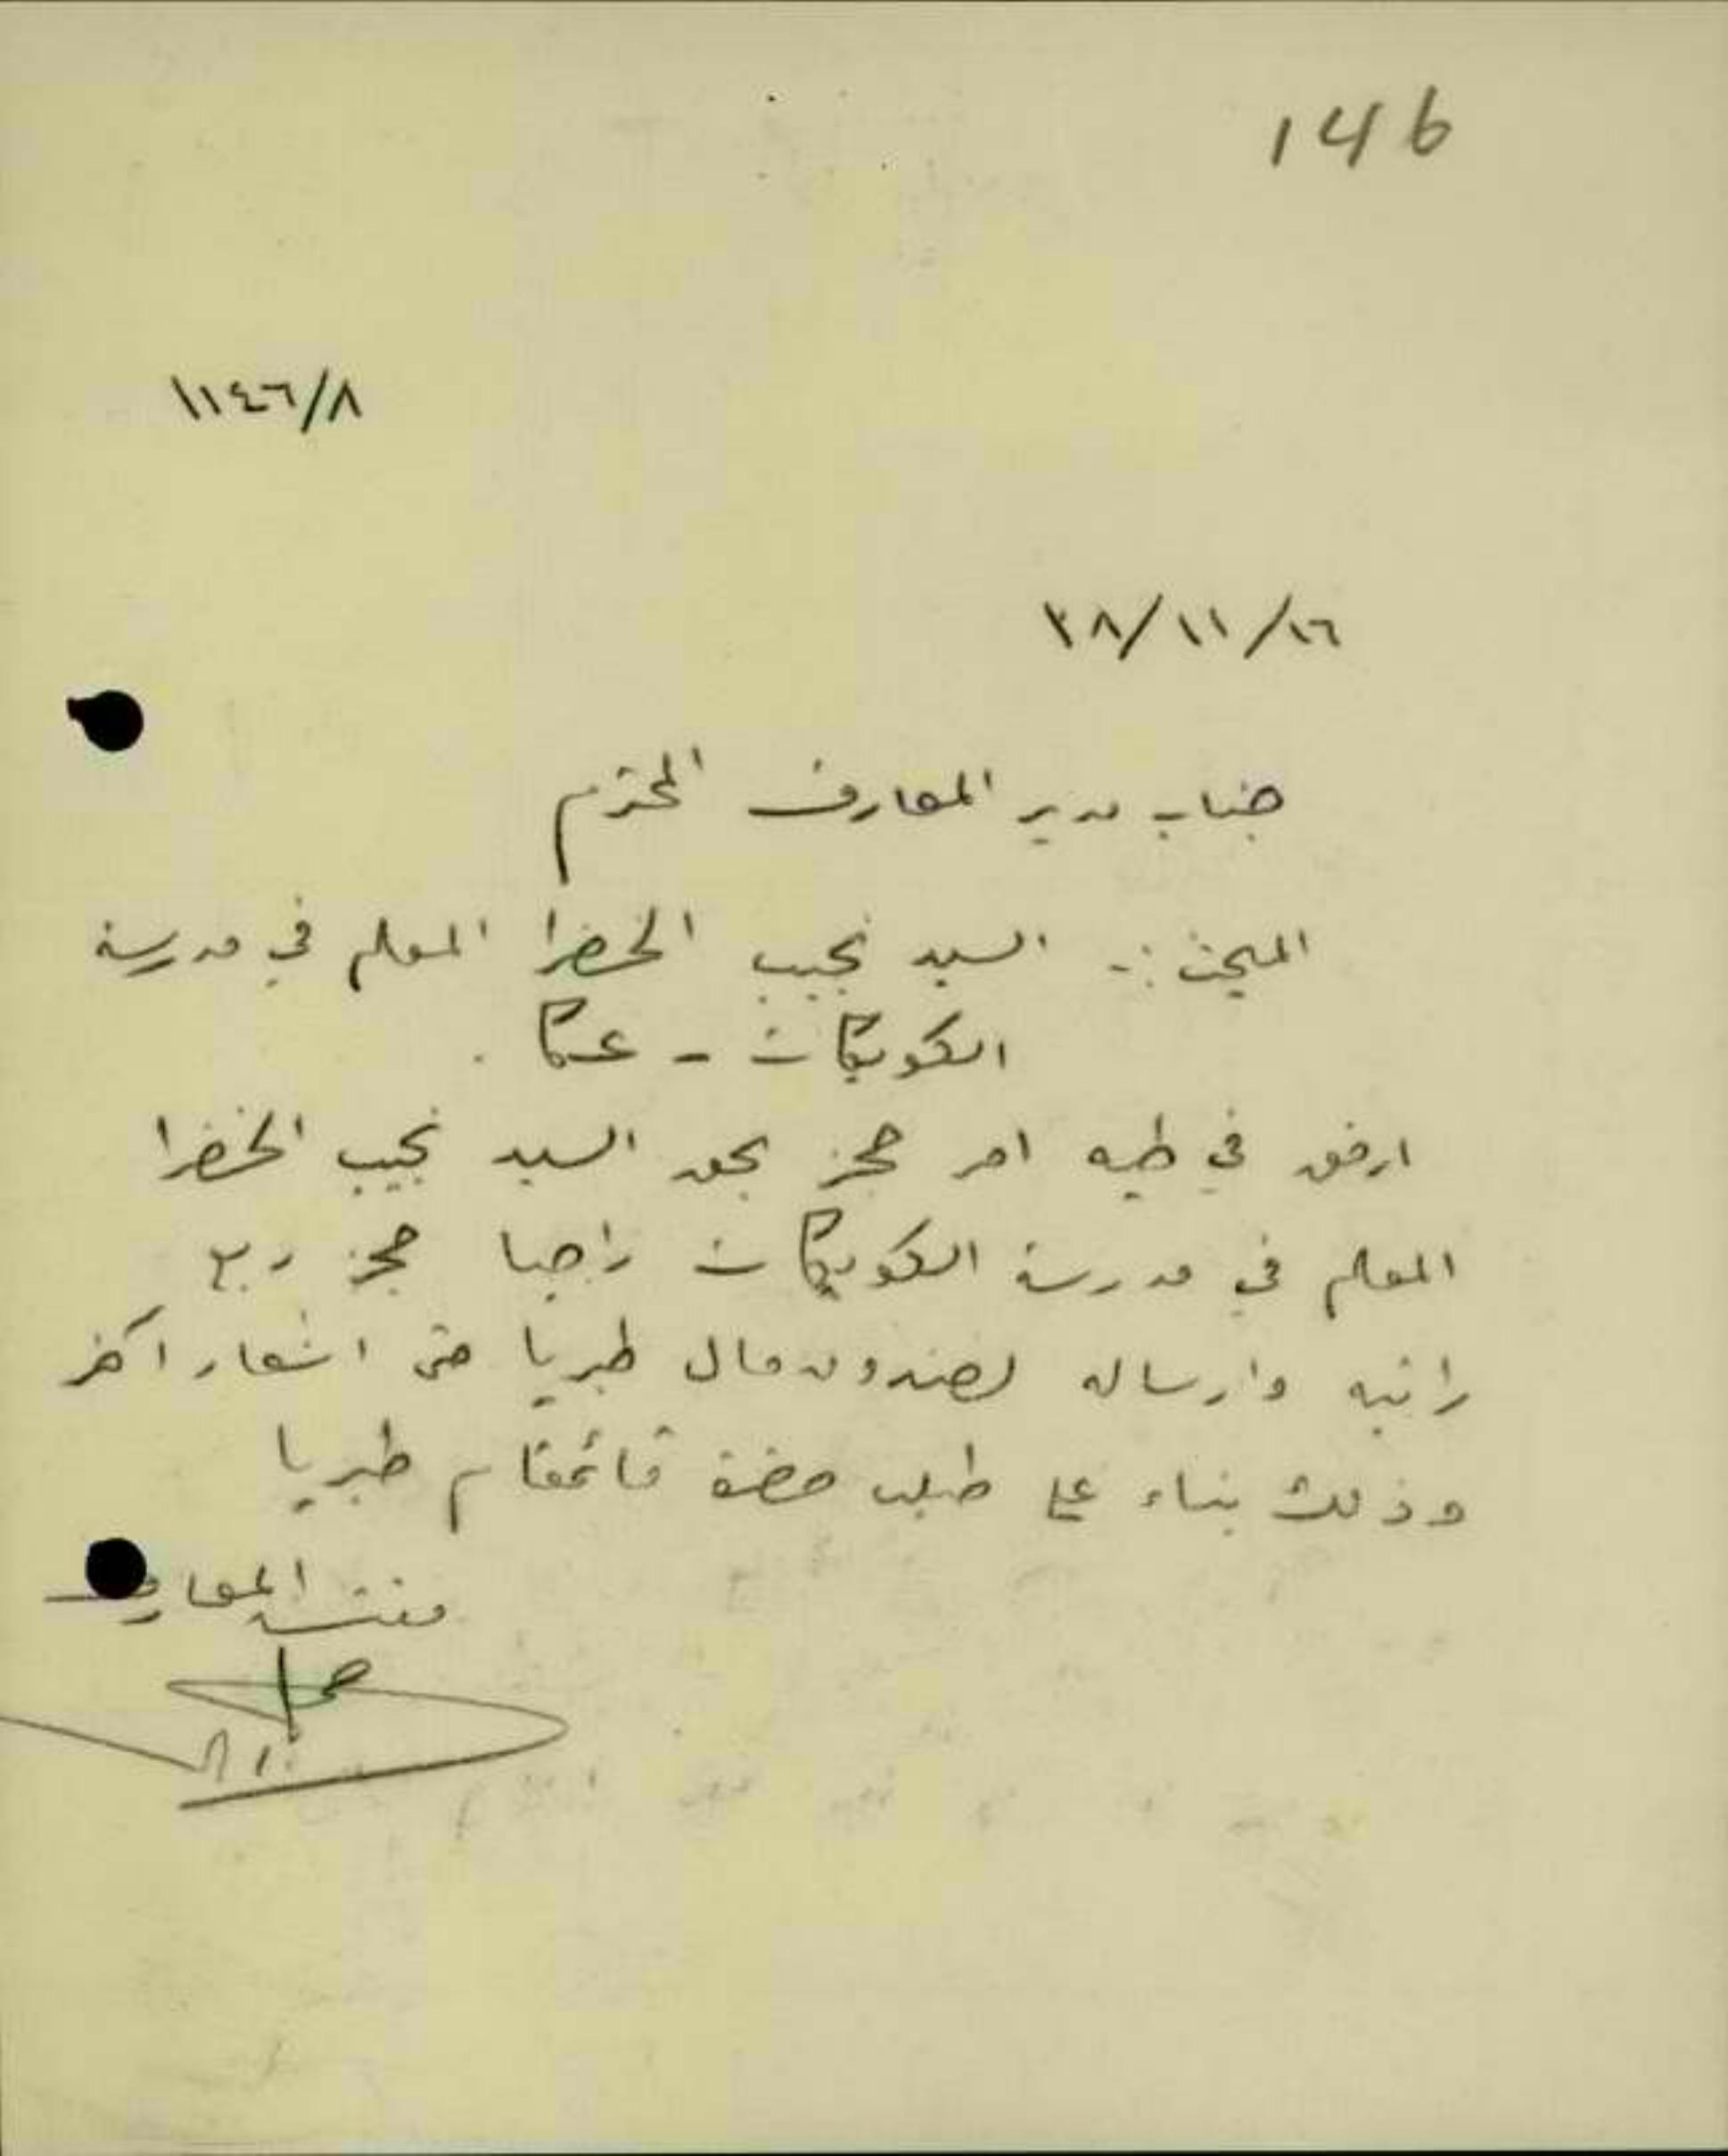 146
١١٤٦/٨
٣٨/١١/١٦
جناب مدير المعارف المحترم
المبحث :- السيد نجيب الخضرا المعلم في مدرسة
الكويكات - عكا .
ارفق في طيه امر حجز بحق السيد نجيب الخضرا
المعلم في مدرسة الكويكات راجيا حجز ربع
راتبه وارساله لصندوق مال طبريا حتى اشعار آخر
وذلك بناء على طلب حضرة قائمقام طبريا
مفتش المعارف